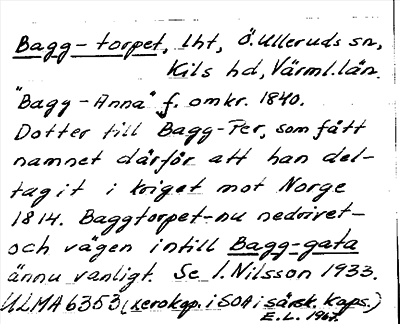 Bagg-torpet, lht, Ö.Ulleruds sn,
Kils hd, Värml.län.
"Bagg-Anna" f. omkr. 1840.
Dotter till Bagg-Per, som fått
namnet därför att han del-
tagit i kriget mot Norge
1814. Baggtorpet-nu nedrivet-
och vägen intill Bagg-gata
ännu vanligt. Se I.Nilsson 1933.
ULMA 6353 (xerokop. i SOA i särsk. kaps.)
E.L. 1967.